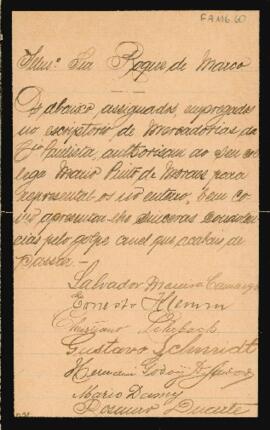 FAMB.60
Illmo. Snr. Roque de Marco
Os abaixo assignados, empregados
no escriptorio de Mercadorias da
Cia Paulista, authorisam ao seu col
lega Mario Pinto de Moraes para
represental-os no enterro, bem co
mo apresentar-lhe sinceras condolen
cias pelo golpe cruel que acabais de
passar.
Salvador Camargo
Ernesto Klemm
Gustavo Schmidt
Hermani Godoy
Mario
Duarte